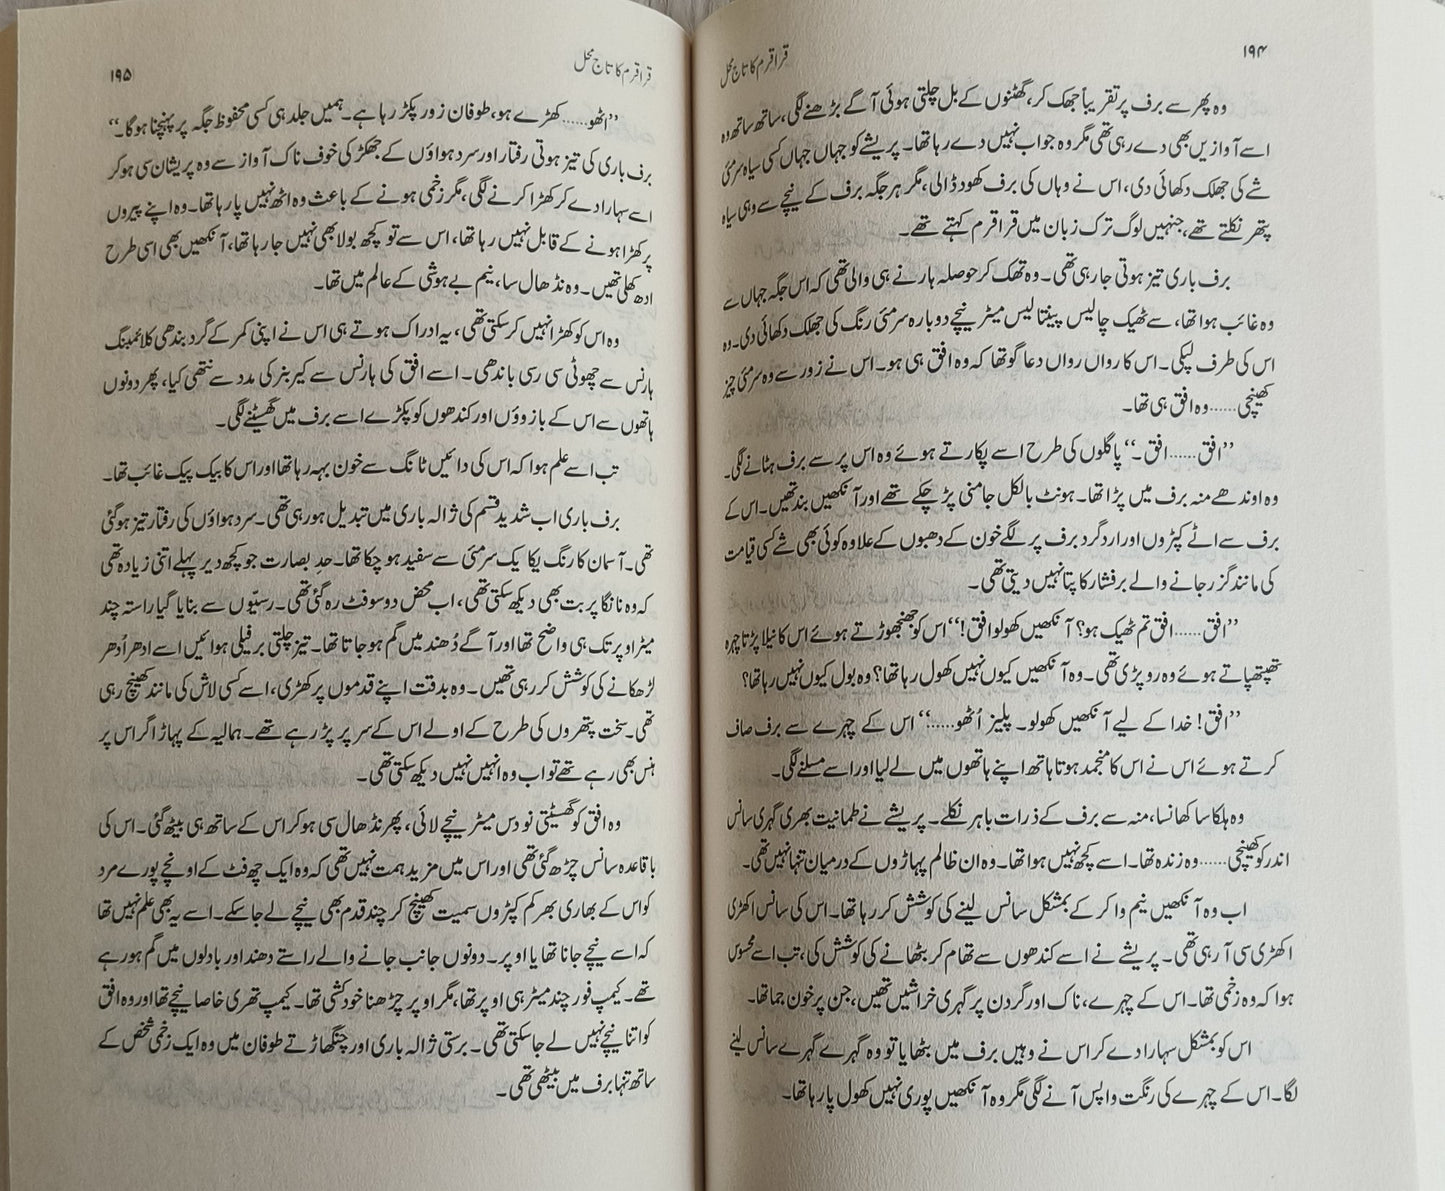 ۱۹۴
قراقرم کا تاج محل
وہ پھر سے برف پر تقریباً جھک کر، گھٹنوں کے بل چلتی ہوئی آگے بڑھنے لگی، ساتھ ساتھ وہ
اسے آوازیں بھی دے رہی تھی مگر وہ جواب نہیں دے رہا تھا۔ پریشے کو جہاں جہاں کسی سیاہ سرمئی
شے کی جھلک دکھائی دی، اس نے وہاں کی برف کھود ڈالی، مگر ہر جگہ برف کے نیچے سے وہی سیاہ
پتھر نکلتے تھے، جنہیں لوگ ترک زبان میں قراقرم کہتے تھے۔
برف باری تیز ہوتی جا رہی تھی۔ وہ تھک کر حوصلہ ہارنے ہی والی تھی کہ اس جگہ جہاں سے
وہ غائب ہوا تھا، سے ٹھیک چالیس پینتالیس میٹر نیچے دوبارہ سرمئی رنگ کی جھلک دکھائی دی۔ وہ
اس کی طرف لپکی۔ اس کا رواں رواں دعا گو تھا کہ وہ افق ہی ہو۔ اس نے زور سے وہ سرمئی چیز
کھینچی...... وہ افق ہی تھا۔
”افق...... افق۔“ پاگلوں کی طرح اسے پکارتے ہوئے وہ اس پر سے برف ہٹانے لگی۔
وہ اوندھے منہ برف میں پڑا تھا۔ ہونٹ بالکل جامنی پڑ چکے تھے اور آنکھیں بند تھیں۔ اس کے
برف سے اٹے کپڑوں اور ارد گرد برف پر لگے خون کے دھبوں کے علاوہ کوئی بھی شے کسی قیامت
کی مانند گزر جانے والے برفشار کا پتا نہیں دیتی تھی۔
”افق...... افق تم ٹھیک ہو؟ آنکھیں کھولو افق!“ اس کو جھنجھوڑتے ہوئے اس کا نیلا پڑتا چہرہ
تھپتھپاتے ہوئے وہ رو پڑی تھی۔ وہ آنکھیں کیوں نہیں کھول رہا تھا؟ وہ بول کیوں نہیں رہا تھا؟
”افق! خدا کے لیے آنکھیں کھولو۔ پلیز اُٹھو......“ اس کے چہرے سے برف صاف
کرتے ہوئے اس نے اس کا منجمد ہوتا ہاتھ اپنے ہاتھوں میں لے لیا اور اسے مسلنے لگی۔
وہ ہلکا سا کھانسا، منہ سے برف کے ذرات باہر نکلے۔ پریشے نے طمانیت بھری گہری سانس
اندر کو کھینچی...... وہ زندہ تھا۔ اسے کچھ نہیں ہوا تھا۔ وہ ان ظالم پہاڑوں کے درمیان تنہا نہیں تھی۔
اب وہ آنکھیں نیم وا کر کے بمشکل سانس لینے کی کوشش کر رہا تھا۔ اس کی سانس اکھڑی
اکھڑی سی آ رہی تھی۔ پریشے نے اسے کندھوں سے تھام کر بٹھانے کی کوشش کی، تب اسے محسوس
ہوا کہ وہ زخمی تھا۔ اس کے چہرے، ناک اور گردن پر گہری خراشیں تھیں، جن پر خون جما تھا۔
اس کو بمشکل سہارا دے کر اس نے وہیں برف میں بٹھایا تو وہ گہرے گہرے سانس لینے
لگا۔ اس کے چہرے کی رنگت واپس آنے لگی مگر وہ آنکھیں پوری نہیں کھول پا رہا تھا۔
قراقرم کا تاج محل
۱۹۵
”اٹھو...... کھڑے ہو، طوفان زور پکڑ رہا ہے۔ ہمیں جلد ہی کسی محفوظ جگہ پر پہنچنا ہوگا۔“
برف باری کی تیز ہوتی رفتار اور سرد ہواؤں کے جھکڑ کی خوف ناک آواز سے وہ پریشان سی ہو کر
اسے سہارا دے کر کھڑا کرنے لگی، مگر زخمی ہونے کے باعث وہ اٹھ نہیں پا رہا تھا۔ وہ اپنے پیروں
پر کھڑا ہونے کے قابل نہیں رہا تھا، اس سے تو کچھ بولا بھی نہیں جا رہا تھا، آنکھیں بھی اسی طرح
ادھ کھلی تھیں۔ وہ نڈھال سا، نیم بے ہوشی کے عالم میں تھا۔
وہ اس کو کھڑا نہیں کر سکتی تھی، یہ ادراک ہوتے ہی اس نے اپنی کمر کے گرد بندھی کلائمبنگ
ہارنس سے چھوٹی سی رسی باندھی۔ اسے افق کی ہارنس سے کیربنر کی مدد سے نتھی کیا، پھر دونوں
ہاتھوں سے اس کے بازوؤں اور کندھوں کو پکڑے اسے برف میں گھسیٹنے لگی۔
تب اسے علم ہوا کہ اس کی دائیں ٹانگ سے خون بہہ رہا تھا اور اس کا بیک پیک غائب تھا۔
برف باری اب شدید قسم کی ژالہ باری میں تبدیل ہو رہی تھی۔ سرد ہواؤں کی رفتار تیز ہو گئی
تھی۔ آسمان کا رنگ یکایک سرمئی سے سفید ہو چکا تھا۔ حد بصارت جو کچھ دیر پہلے اتنی زیادہ تھی
کہ وہ نانگا پربت بھی دیکھ سکتی تھی، اب محض دو سو فٹ رہ گئی تھی۔ رسیّوں سے بنایا گیا راستہ چند
میٹر اوپر تک ہی واضح تھا اور آگے دُھند میں گم ہو جاتا تھا۔ تیز چلتی برفیلی ہوائیں اسے ادھر اُدھر
لڑھکانے کی کوشش کر رہی تھیں۔ وہ بدقت اپنے قدموں پر کھڑی، اسے کسی لاش کی مانند کھینچ رہی
تھی۔ سخت پتھروں کی طرح کے اولے اس کے سر پر پڑ رہے تھے۔ ہمالیہ کے پہاڑ اگر اس پر
ہنس بھی رہے تھے تو اب وہ انہیں نہیں دیکھ سکتی تھی۔
وہ افق کو گھسیٹتی نو دس میٹر نیچے لائی، پھر نڈھال سی ہو کر اس کے ساتھ ہی بیٹھ گئی۔ اس کی
باقاعدہ سانس چڑھ گئی تھی اور اس میں مزید ہمت نہیں تھی کہ وہ ایک چھ فٹ کے اونچے پورے مرد
کو اس کے بھاری بھر کم کپڑوں سمیت کھینچ کر چند قدم بھی نیچے لے جا سکے۔ اسے یہ بھی علم نہیں تھا
کہ اسے نیچے جانا تھا یا اوپر۔ دونوں جانب جانے والے راستے دھند اور بادلوں میں گم ہو رہے
تھے۔ کیمپ فور چند میٹر ہی اوپر تھا، مگر اوپر چڑھنا خودکشی تھا۔ کیمپ تھری خاصا نیچے تھا اور وہ افق
کو اتنا نیچے نہیں لے جا سکتی تھی۔ برستی ژالہ باری اور چنگھاڑتے طوفان میں وہ ایک زخمی شخص کے
ساتھ تنہا برف میں بیٹھی تھی۔